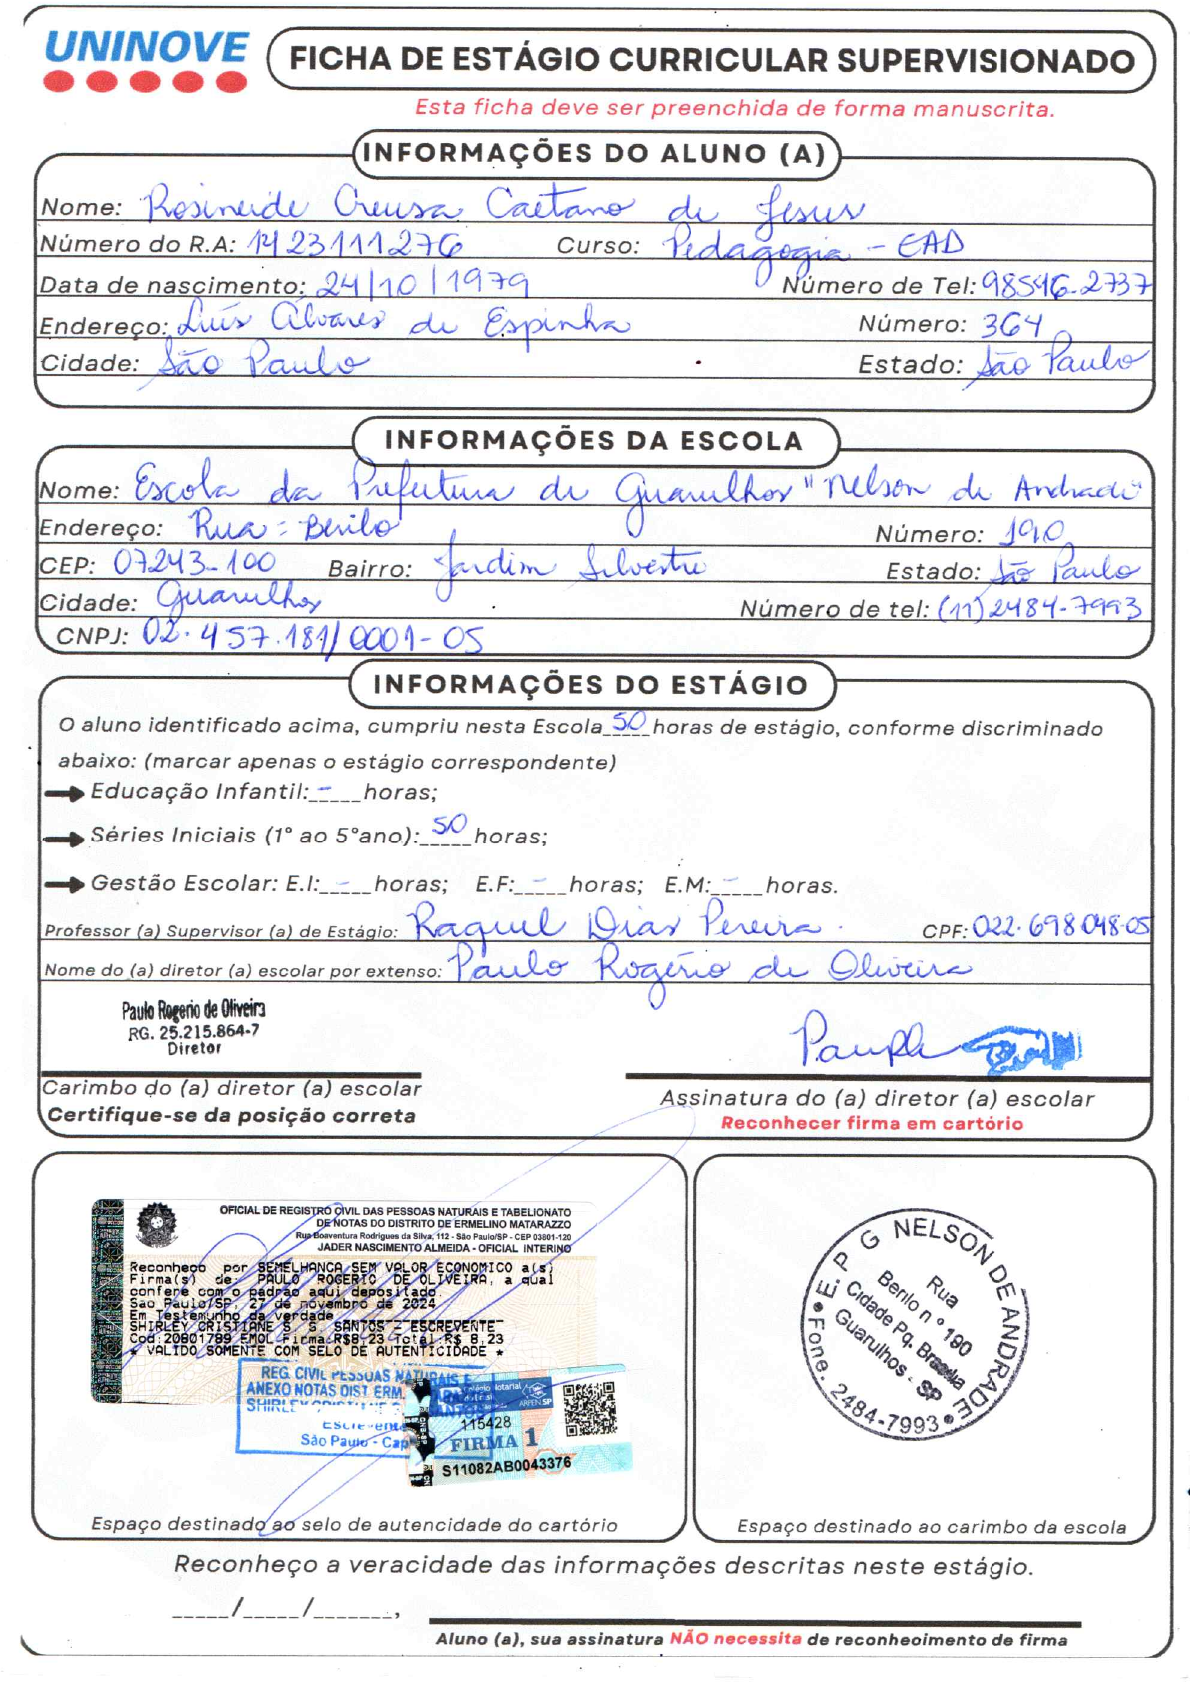 UNINOVE
FICHA DE ESTÁGIO CURRICULAR SUPERVISIONADO
Esta ficha deve ser preenchida de forma manuscrita.
INFORMAÇÕES DO ALUNO (A)
Nome: Rosineide Creusa Caetano de Jesus
Número do R.A: 1423111276 Curso: Pedagogia - EAD
Data de nascimento: 24/10/1979 Número de Tel: 98546-2737
Endereço: Luís Álvares de Espinha Número: 364
Cidade: São Paulo Estado: São Paulo
INFORMAÇÕES DA ESCOLA
Nome: Escola da Prefeitura de Guarulhos "Nelson de Andrade"
Endereço: Rua = Berilo Número: 190
CEP: 07243-100 Bairro: Jardim Silvestre Estado: São Paulo
Cidade: Guarulhos Número de tel: (11) 2484-7993
CNPJ: 02.457.181/0001-05
INFORMAÇÕES DO ESTÁGIO
O aluno identificado acima, cumpriu nesta Escola 50 horas de estágio, conforme discriminado
abaixo: (marcar apenas o estágio correspondente)
Educação Infantil: - horas;
Séries Iniciais (1º ao 5ºano): 50 horas;
Gestão Escolar: E.I: - horas; E.F: - horas; E.M: - horas.
Professor (a) Supervisor (a) de Estágio: Raquel Dias Pereira. CPF: 022.698.048-05
Nome do (a) diretor (a) escolar por extenso: Paulo Rogério de Oliveira
Paulo Rogerio de Oliveira
RG. 25.215.864-7
Diretor
Carimbo do (a) diretor (a) escolar
Certifique-se da posição correta
Assinatura do (a) diretor (a) escolar
Reconhecer firma em cartório
OFICIAL DE REGISTRO CIVIL DAS PESSOAS NATURAIS E TABELIONATO
DE NOTAS DO DISTRITO DE ERMELINO MATARAZZO
Rua Boaventura Rodrigues da Silva, 112 - São Paulo/SP - CEP 03801-120
JADER NASCIMENTO ALMEIDA - OFICIAL INTERINO
Reconheço por SEMELHANCA SEM VALOR ECONOMICO a(s)
Firma(s) de: PAULO ROGERIO DE OLIVEIRA, a qual
confere com o padrão aqui depositado.
Sao Paulo/SP, 27 de novembro de 2024
Em Testemunho da verdade
SHIRLEY CRISTIANE S S SANTOS - ESCREVENTE
Cod:20801789 EMOL Firma:R$8,23 Total:R$ 8,23
* VALIDO SOMENTE COM SELO DE AUTENTICIDADE *
REG. CIVIL PESSOAS NATURAIS E
ANEXO NOTAS DIST ERM.
São Paulo - Cap
115428
FIRMA 1
S11082AB0043376
Espaço destinado ao selo de autencidade do cartório
E. P G NELSON DE ANDRADE
Rua
Berilo n º 190
Cidade Pq. Brasilia
Guarulhos - SP
Fone. 2484-7993
Espaço destinado ao carimbo da escola
Reconheço a veracidade das informações descritas neste estágio.
_____/_____/_______,
Aluno (a), sua assinatura NÃO necessita de reconhecimento de firma